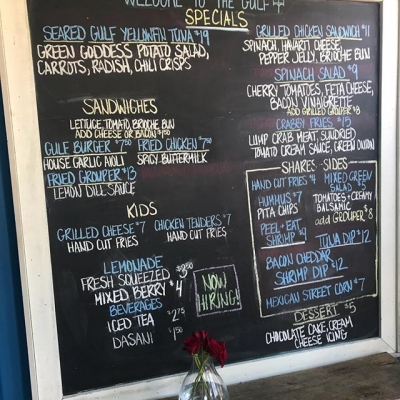 WELCOME TO THE GULF
SPECIALS
SEARED GULF YELLOWFIN TUNA $19
GREEN GODDESS POTATO SALAD,
CARROTS, RADISH, CHILI CRISPS
GRILLED CHICKEN SANDWICH $11
SPINACH, HAVARTI CHEESE,
PEPPER JELLY, BRIOCHE BUN
SPINACH SALAD $9
CHERRY TOMATOES, FETA CHEESE,
BACON VINAIGRETTE
ADD GRILLED GROUPER $8
CRABBY FRIES $13
LUMP CRAB MEAT, SUNDRIED
TOMATO CREAM SAUCE, GREEN ONION
SANDWICHES
LETTUCE, TOMATO, BRIOCHE BUN
ADD CHEESE OR BACON $1.50
GULF BURGER $7.50
HOUSE GARLIC AIOLI
FRIED CHICKEN $7
SPICY BUTTERMILK
FRIED GROUPER $13
LEMON DILL SAUCE
KIDS
GRILLED CHEESE $7
HAND CUT FRIES
CHICKEN TENDERS $7
HAND CUT FRIES
LEMONADE
FRESH SQUEEZED $3.50
MIXED BERRY $4
BEVERAGES
ICED TEA $2.75
DASANI $1.50
NOW
HIRING!
SHARES + SIDES
HAND CUT FRIES $4
HUMMUS $7
PITA CHIPS
PEEL + EAT
SHRIMP
MIXED GREEN
SALAD $5
TOMATOES + CREAMY
BALSAMIC
add GROUPER $8
TUNA DIP $12
BACON CHEDDAR
SHRIMP DIP $12
MEXICAN STREET CORN $7
DESSERT $5
CHOCOLATE CAKE, CREAM
CHEESE ICING